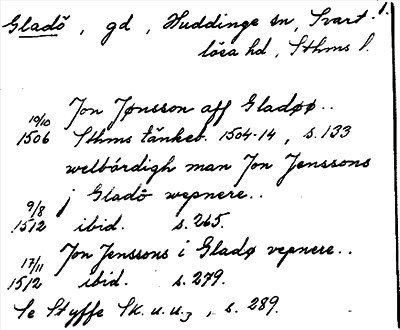 Gladö, gd, Huddinge sn, Svart-
lösa hd, Sthms l.
Jon Jønsson aff Gladøø..
19/10 1506 Sthms tänkeb. 1504-14, s. 133
welbördigh man Jon Jenssons
j Gladö wepnere..
9/8 1512 ibid. s. 265.
Jon Jenssons i Gladø vepnere..
17/11 1512 ibid. s. 279.
Se Styffe Sk. u. u.3, s. 289.